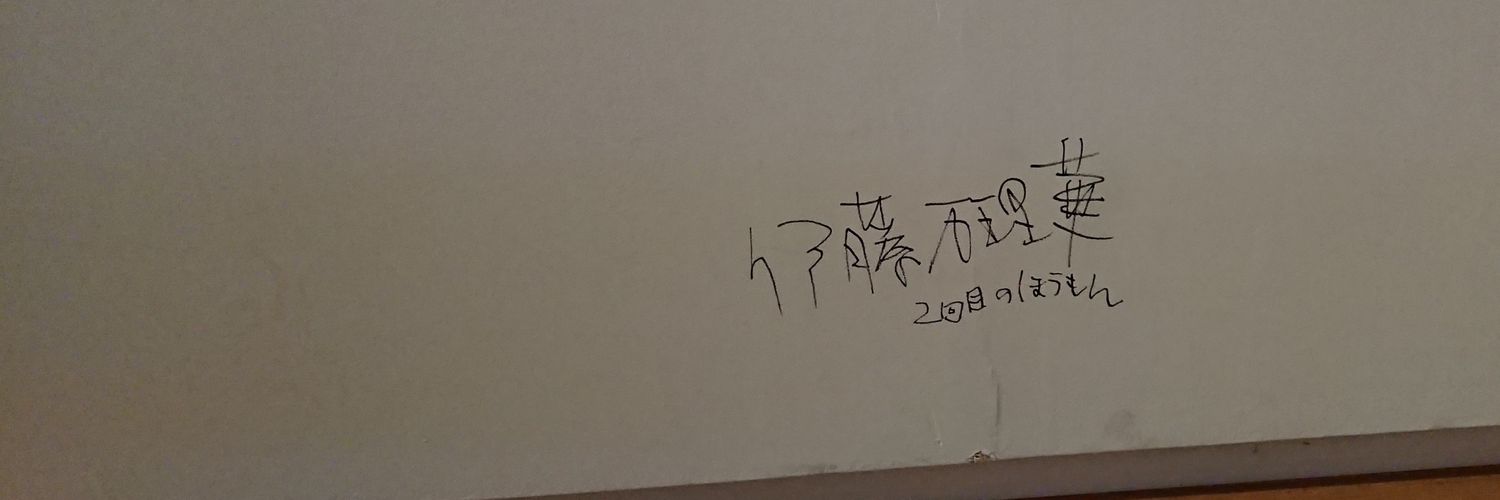 伊藤万理華
2回目のほうもん